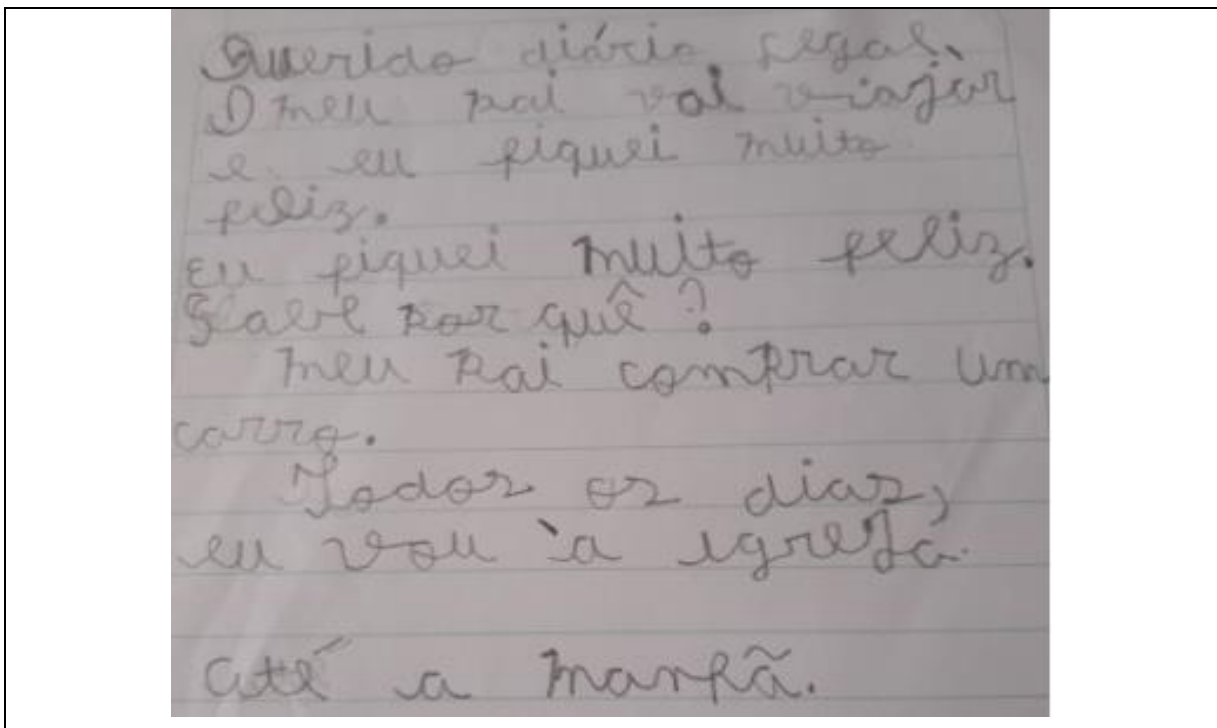 Querido diário legal,
O meu pai vai viajar
e eu fiquei muito
feliz.
Eu fiquei muito feliz.
Sabe por quê?
Meu pai comprar um
carro.
Todos os dias,
eu vou à igreja.
até a manhã.